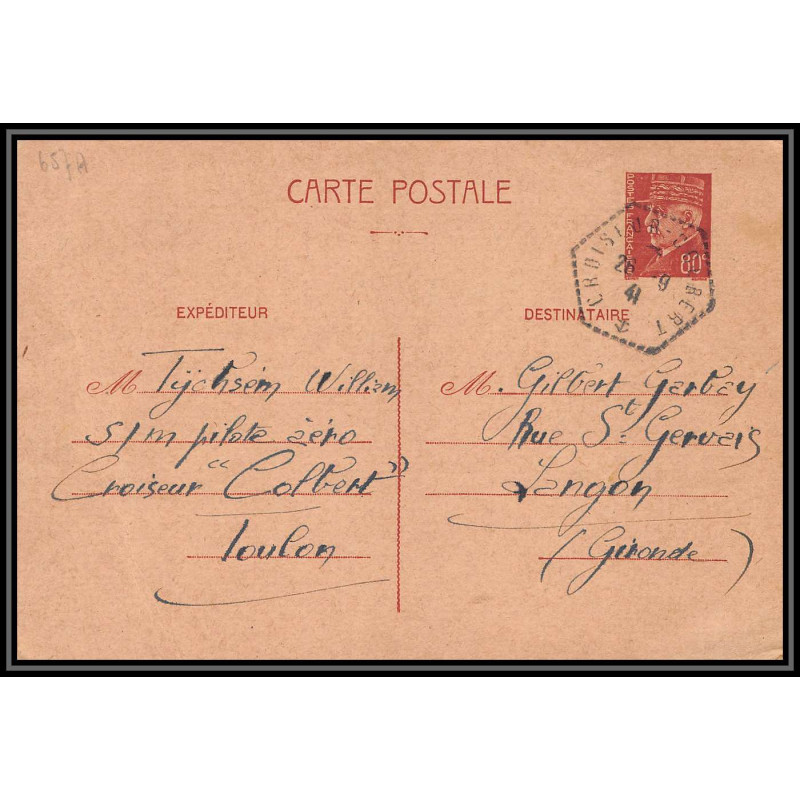 657A
CARTE POSTALE
POSTES FRANÇAISES
80c
CROISEUR COLBERT
9
41
EXPÉDITEUR
DESTINATAIRE
M Tijchsém William
S/m pilote aéro
Croiseur "Colbert"
Toulon
M. Gilbert Garbay
Rue St Gervais
Langon
(Gironde)